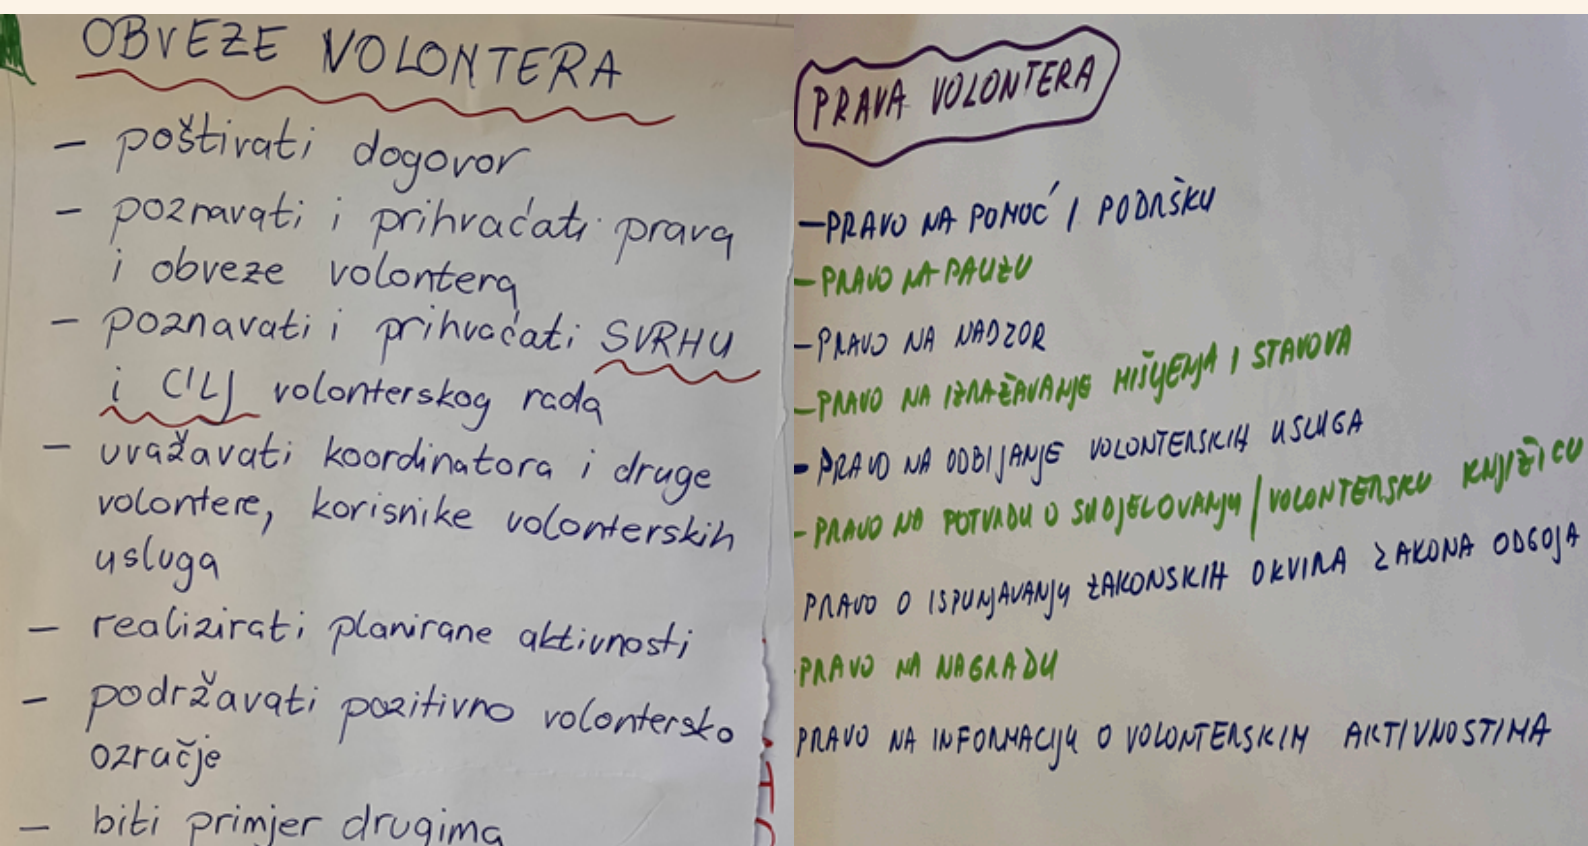 OBVEZE VOLONTERA
- poštivati dogovor
- poznavati i prihvaćati prava
i obveze volontera
- poznavati i prihvaćati SVRHU
i CILJ volonterskog rada
- uvažavati koordinatora i druge
volontere, korisnike volonterskih
usluga
- realizirati planirane aktivnosti
- podržavati pozitivno volontersko
ozračje
- biti primjer drugima
PRAVA VOLONTERA
- PRAVO NA POMOĆ I PODRŠKU
- PRAVO NA PAUZU
- PRAVO NA NADZOR
- PRAVO NA IZRAŽAVANJE MIŠLJENJA I STAVOVA
- PRAVO NA ODBIJANJE VOLONTERSKIH USLUGA
- PRAVO NA POTVRDU O SUDJELOVANJU / VOLONTERSKU KNJIŽICU
PRAVO O ISPUNJAVANJU ZAKONSKIH OKVIRA ZAKONA ODGOJA
PRAVO NA NAGRADU
PRAVO NA INFORMACIJU O VOLONTERSKIM AKTIVNOSTIMA